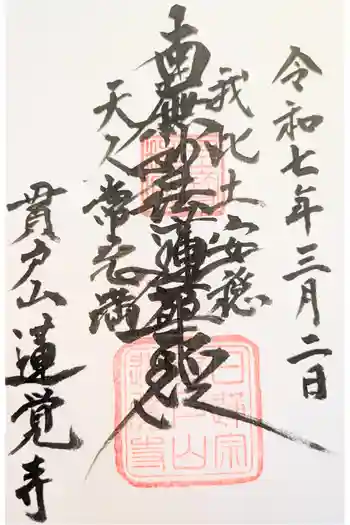 令和七年三月二日
我此土安穏
南無妙法蓮華経
天人常充満
貫戸山
蓮覚寺